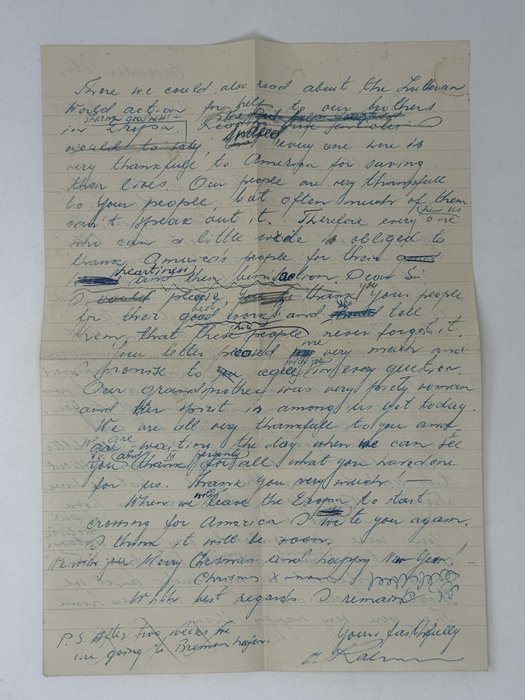 There we could also read about the Lutheran
World action for help to our brothers
in Europa. thank god that
would to say, every one here is
very thankfulle to America for saving
their lives. Our people are very thankfull
to your people but often much of them
can't speak out it. Therefore every one
who can a little write is obliged to
thank America's people for their
heartiness and their action. Dear Sir
I would please, to thank you your people
for their good work and tell
them, that these people never forget it.
Your letter pleased me very much and
I promise to agree with you in every question.
Our grandmother was very piety woman
and her spirit is among us yet today.
We are all very thankfull to you and
are waiting the day when we can see
you and thank for all what you have done
for us. Thank you very much —
When we leave the Europa to start
crossing for America I write you again.
I think it will be soon.
We wish you Merry Chrismas and happy New Year!
Chrismas X-mas
With best regards I remain
Yours faithfully
P.S. After two weeks we
are going to Bremenhafen.